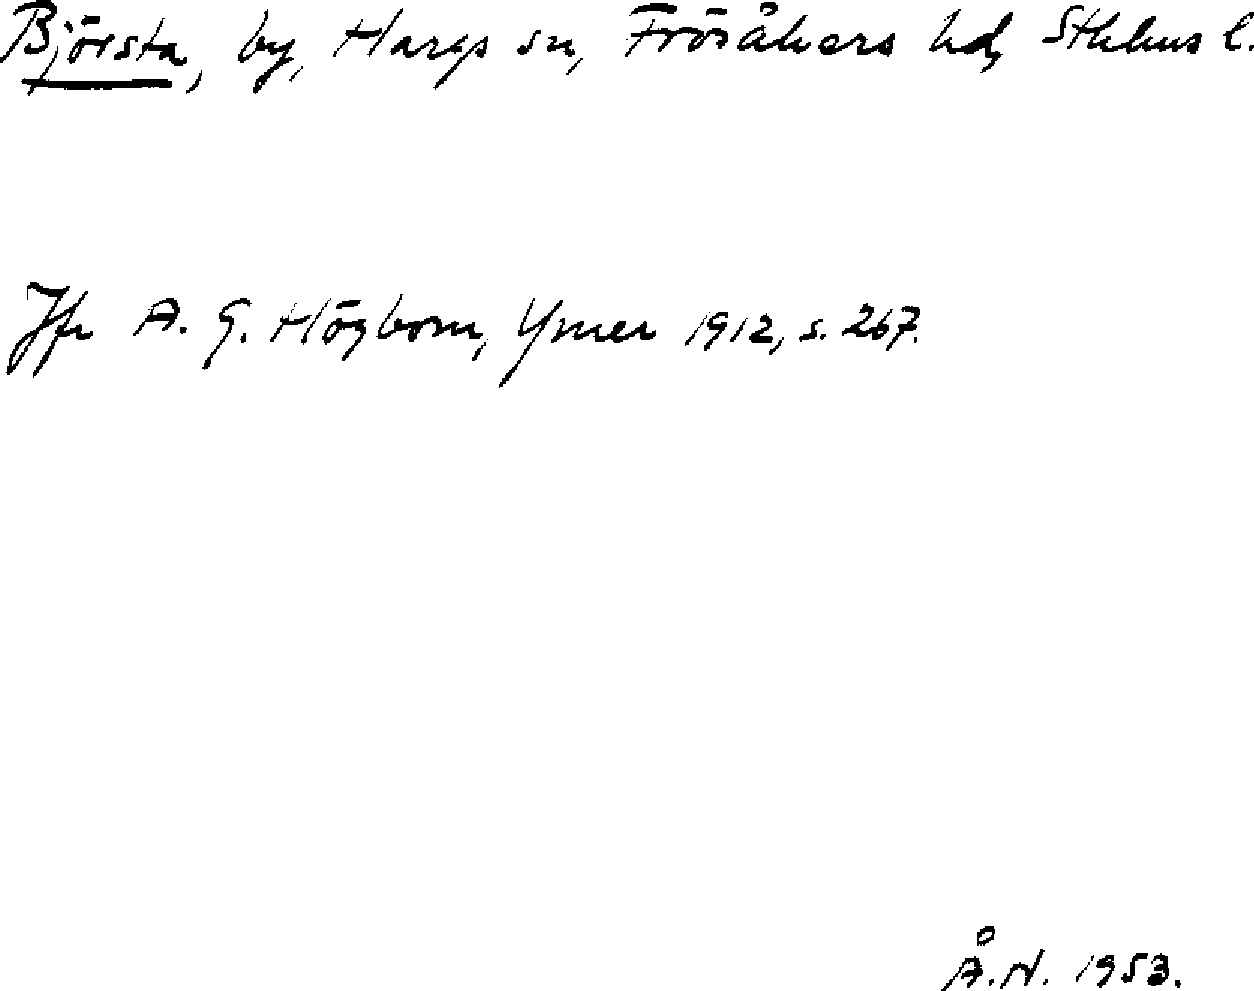 Björsta, by, Hargs sn, Frösåkers hd, Sthlms l.
Jfr A. G. Högbom, Ymer 1912, s. 267.
Å.N. 1953.